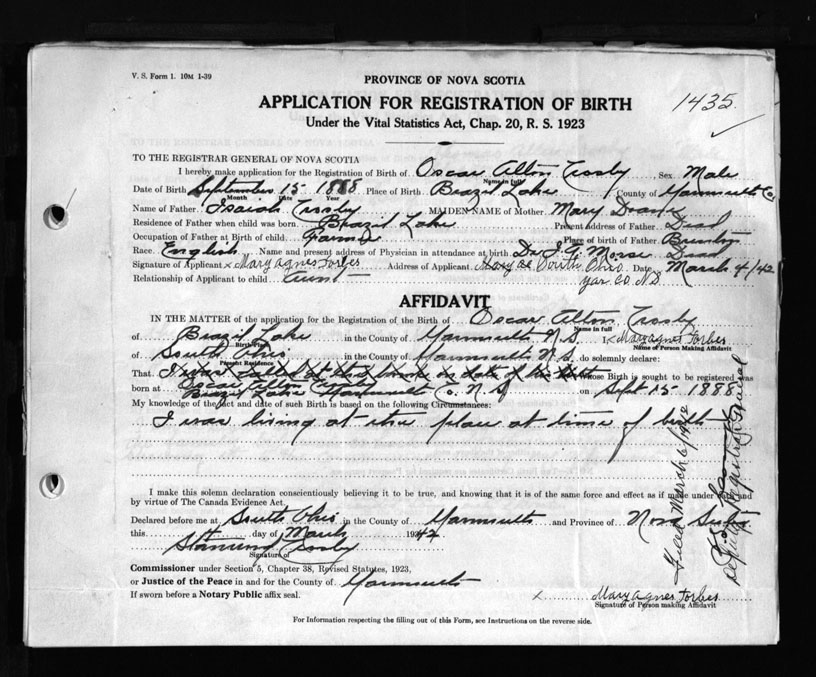 V. S. Form 1. 10M 1-39
PROVINCE OF NOVA SCOTIA
APPLICATION FOR REGISTRATION OF BIRTH
1435
Under the Vital Statistics Act, Chap. 20, R. S. 1923
TO THE REGISTRAR GENERAL OF NOVA SCOTIA
I hereby make application for the Registration of Birth of Oscar Alton Crosby Sex Male
Name in full
Date of Birth September 15 1888 Place of Birth Brazil Lake County of Yarmouth Co.
Month Date Year
Name of Father Isaiah Crosby MAIDEN NAME of Mother Mary
Residence of Father when child was born Brazil Lake Present address of Father Dead
Occupation of Father at Birth of child Farmer Place of birth of Father
Race English Name and present address of Physician in attendance at birth Dr. Morse Dead
Signature of Applicant x Mary Agnes Forbes Address of Applicant South Ohio Date March 4/42
Relationship of Applicant to child Aunt Yar. Co. N.S.
AFFIDAVIT
IN THE MATTER of the application for the Registration of the Birth of Oscar Alton Crosby
Name in full
of Brazil Lake in the County of Yarmouth N.S. I, x Mary Agnes Forbes
Birth Place Name of Person Making Affidavit
of South Ohio in the County of Yarmouth N.S. do solemnly declare:
Present Residence
That I was at the date of the birth whose Birth is sought to be registered was
Oscar Alton Crosby
born at Brazil Lake Yarmouth Co. N.S. on Sept 15 1888
My knowledge of the fact and date of such Birth is based on the following Circumstances:
I was living at the place at time of birth
I make this solemn declaration conscientiously believing it to be true, and knowing that it is of the same force and effect as if made under oath and
by virtue of The Canada Evidence Act.
Declared before me at South Ohio in the County of Yarmouth and Province of Nova Scotia
this day of March 1942
Crosby
Signature of
Commissioner under Section 5, Chapter 38, Revised Statutes, 1923,
or Justice of the Peace in and for the County of Yarmouth
If sworn before a Notary Public affix seal.
x Mary Agnes Forbes
Signature of Person making Affidavit
For Information respecting the filling out of this Form, see Instructions on the reverse side.
Filed March 6/1942
Deputy Registrar General